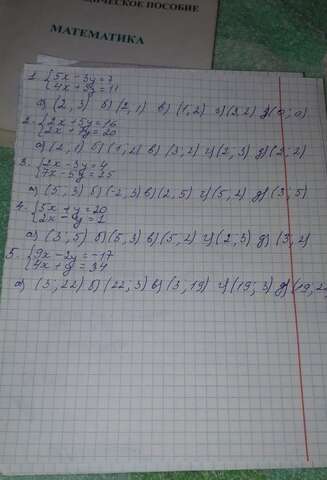 ИЧЕСКОЕ ПОСОБИЕ
МАТЕМАТИКА
1. {5x − 3y = 7
{4x + 3y = 11
а) (2, 3) б) (2, 1) в) (1, 2) г) (3, 2) д) (0; 0)
2. {2x + 5y = 16
{2x + 7y = 20
а) (2, 1) б) (1, 2) в) (3, 2) г) (2, 3) д) (2; 2)
3. {2x − 3y = 4
{7x − 5y = 25
а) (5; 3) б) (-2, 3) в) (2, 5) г) (5, 2) д) (3; 5)
4. {5x + y = 20
{2x − y = 1
а) (3; 5) б) (5, 3) в) (5, 2) г) (2, 5) д) (3, 2)
5. {9x − 2y = -17
{4x + y = 34
а) (3; 22) б) (22; 3) в) (3, 19) г) (19; 3) д) (19, 2